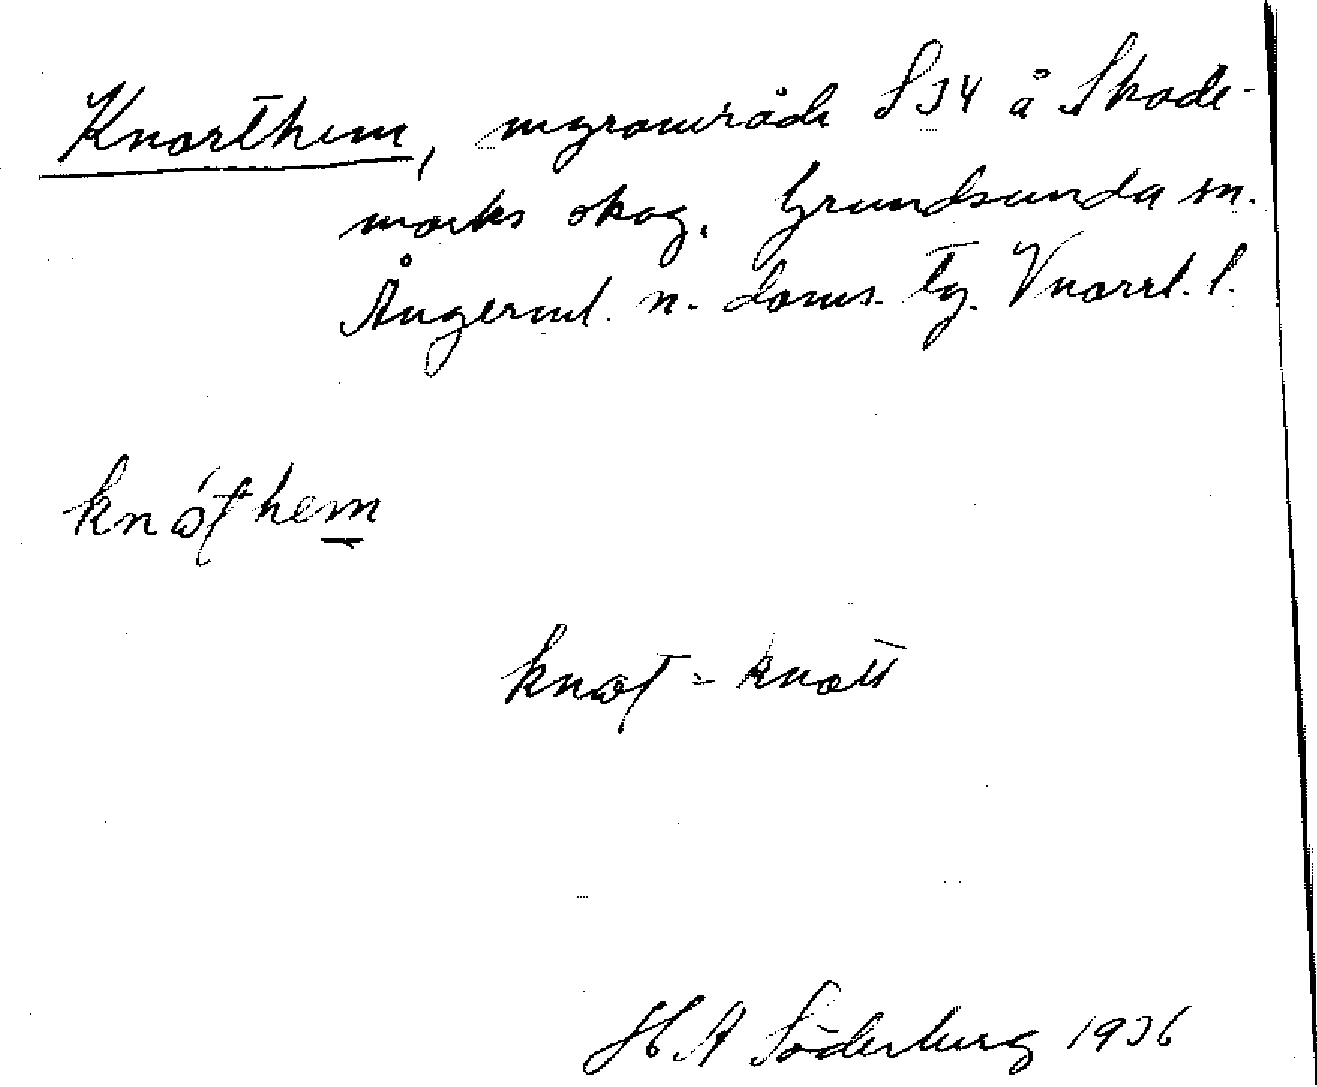 Knorthem, myrområde S34 å Skade-
marks skog. Grundsunda sn.
Ångerml. n. doms. Tg. Vnorrl. l.
knóthem
knot = knott
H A Söderberg 1936